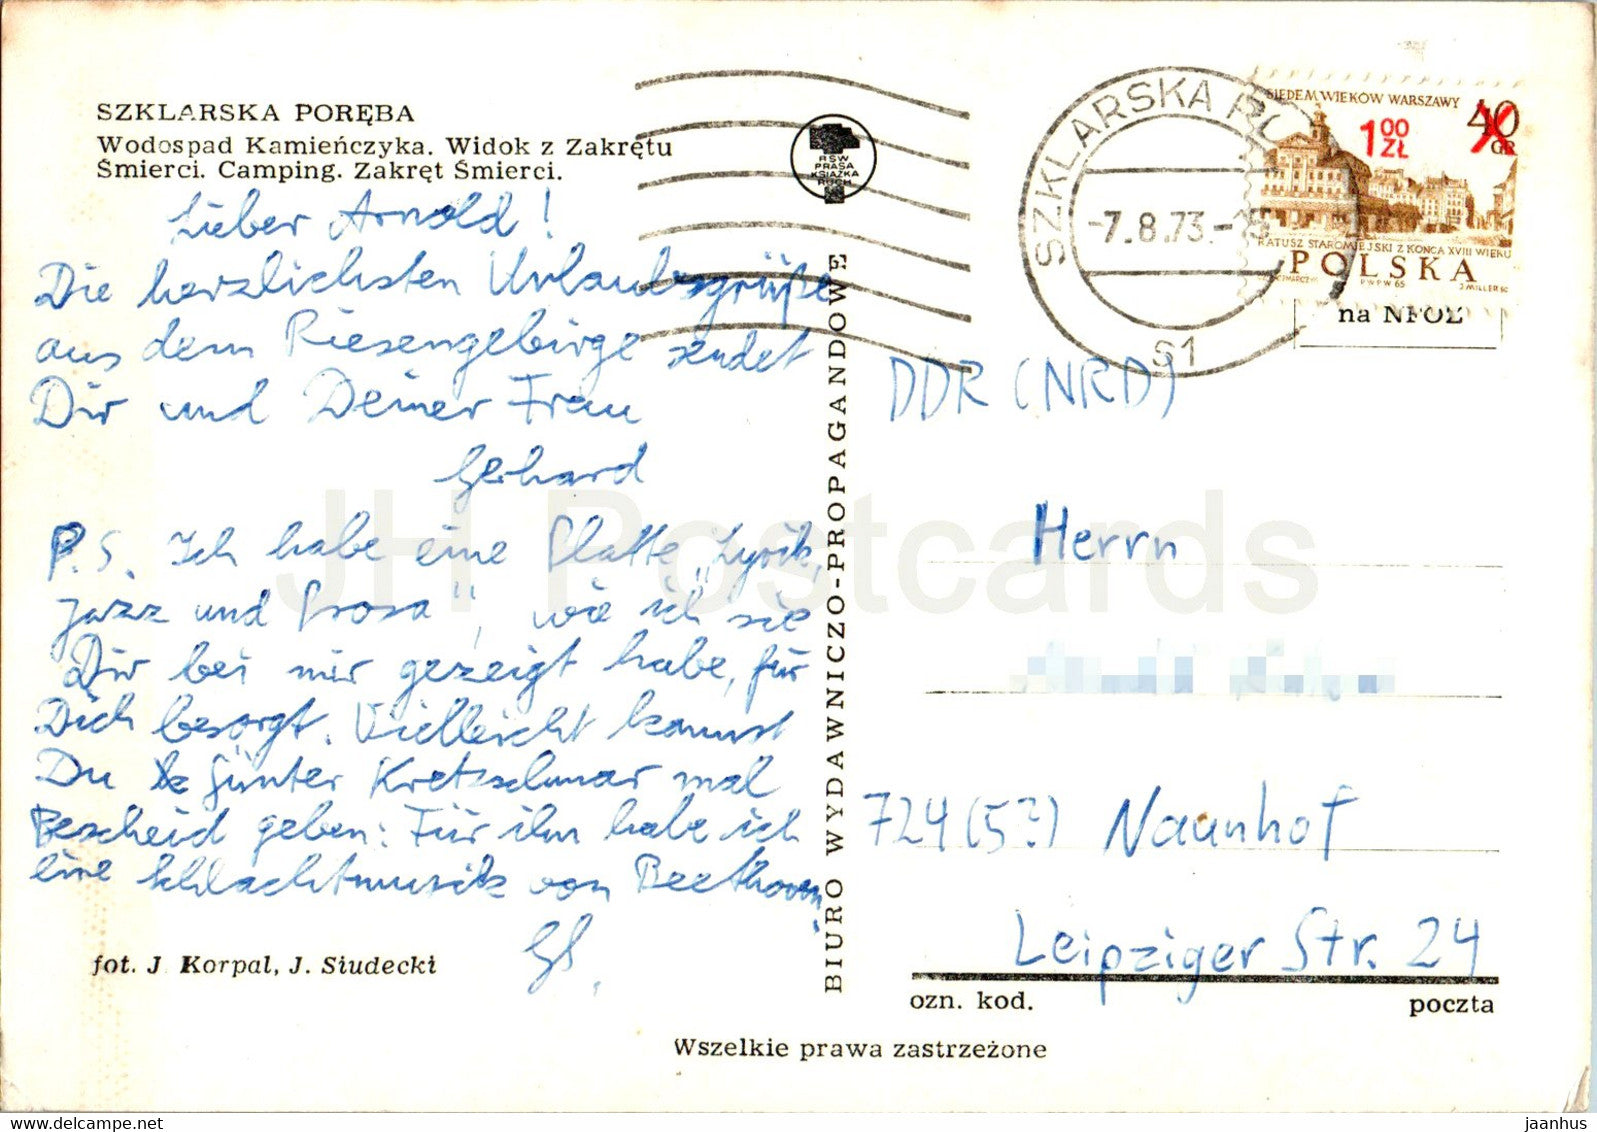 SZKLARSKA PORĘBA
Wodospad Kamieńczyka. Widok z Zakrętu
Śmierci. Camping. Zakręt Śmierci.
Lieber Arnold!
Die herzlichsten Urlaubsgrüße
aus dem Riesengebirge sendet
Dir und Deiner Frau
Gerhard
P.S. Ich habe eine Platte „Lyrik,
Jazz und Prosa", wie ich sie
Dir bei mir gezeigt habe, für
Dich besorgt. Vielleicht kannst
Du Günter Kretzschmar mal
Bescheid geben: Für ihn habe ich
eine Schlachtmusik von Beethoven.
fot. J. Korpal, J. Siudecki
RSW
PRASA
KSIĄŻKA
RUCH
BIURO WYDAWNICZO-PROPAGANDOWE
SZKLARSKA
-7.8.73.-
S1
SIEDEM WIEKÓW WARSZAWY
40
GR
1 00
ZŁ
RATUSZ STAROMIEJSKI Z KOŃCA XVIII WIEKU
POLSKA
PWPW 65
J MILLER SC
na NFOZ
DDR (NRD)
Herrn
724 (53) Naunhof
Leipziger Str. 24
ozn. kod.
poczta
Wszelkie prawa zastrzeżone
JH Postcards
jaanhus @ HipPostcard